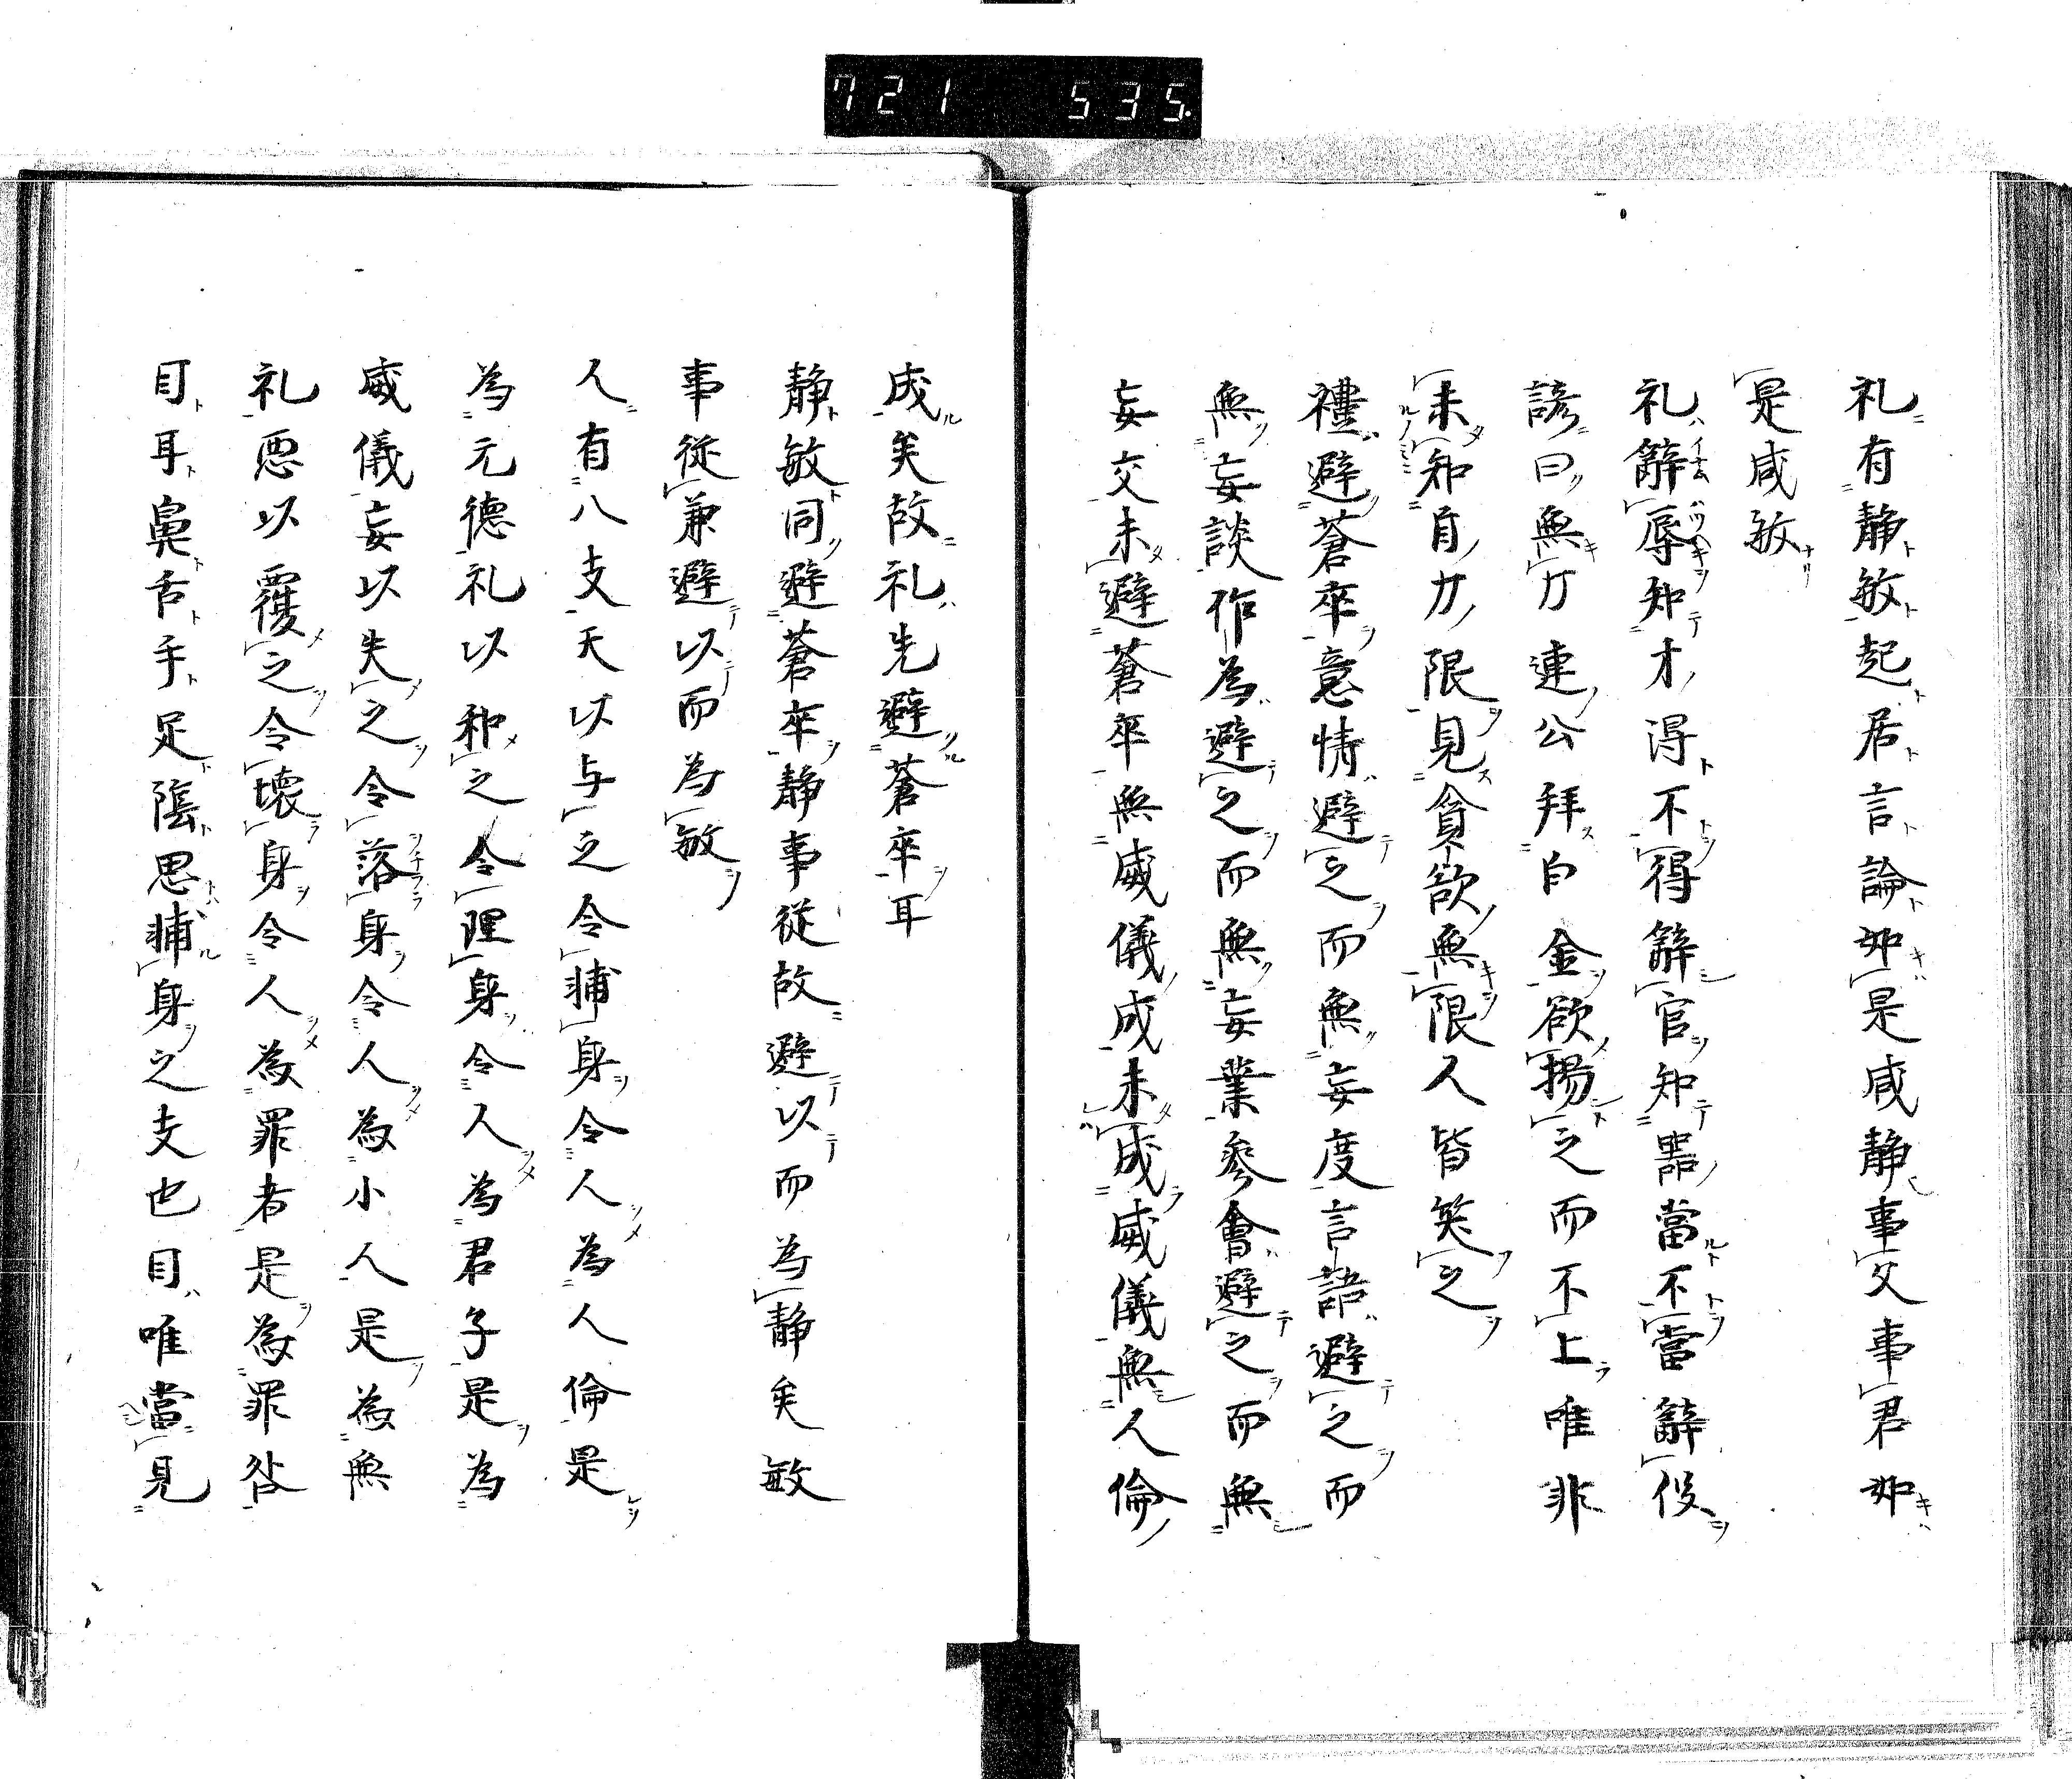 721 535.
礼有静敏起居言論如是咸静事父事君如
是咸敏
礼辭辱知才得不得辭官知器當不當辭役
諺曰無力連公拜自金欲揚之而不上唯非
未知自力限見貪欲無限人皆笑之
禮避蒼卒意情避之而無妄度言語避之而
無妄談作為避之而無妄業參會避之而無
妄交未避蒼卒無威儀成未成威儀無人倫
成矣故礼先避蒼卒耳
静敏同避蒼卒静事從故避以而為静矣敏
事從兼避以而為敏
人有八支天以与之令補身令人為人倫是
為元德礼以和之令理身令人為君子是為
威儀妄以失之令落身令人為小人是為無
礼悪以覆之令壊身令人為罪者是為罪咎
目耳鼻舌手足陰思補身之支也目唯當見